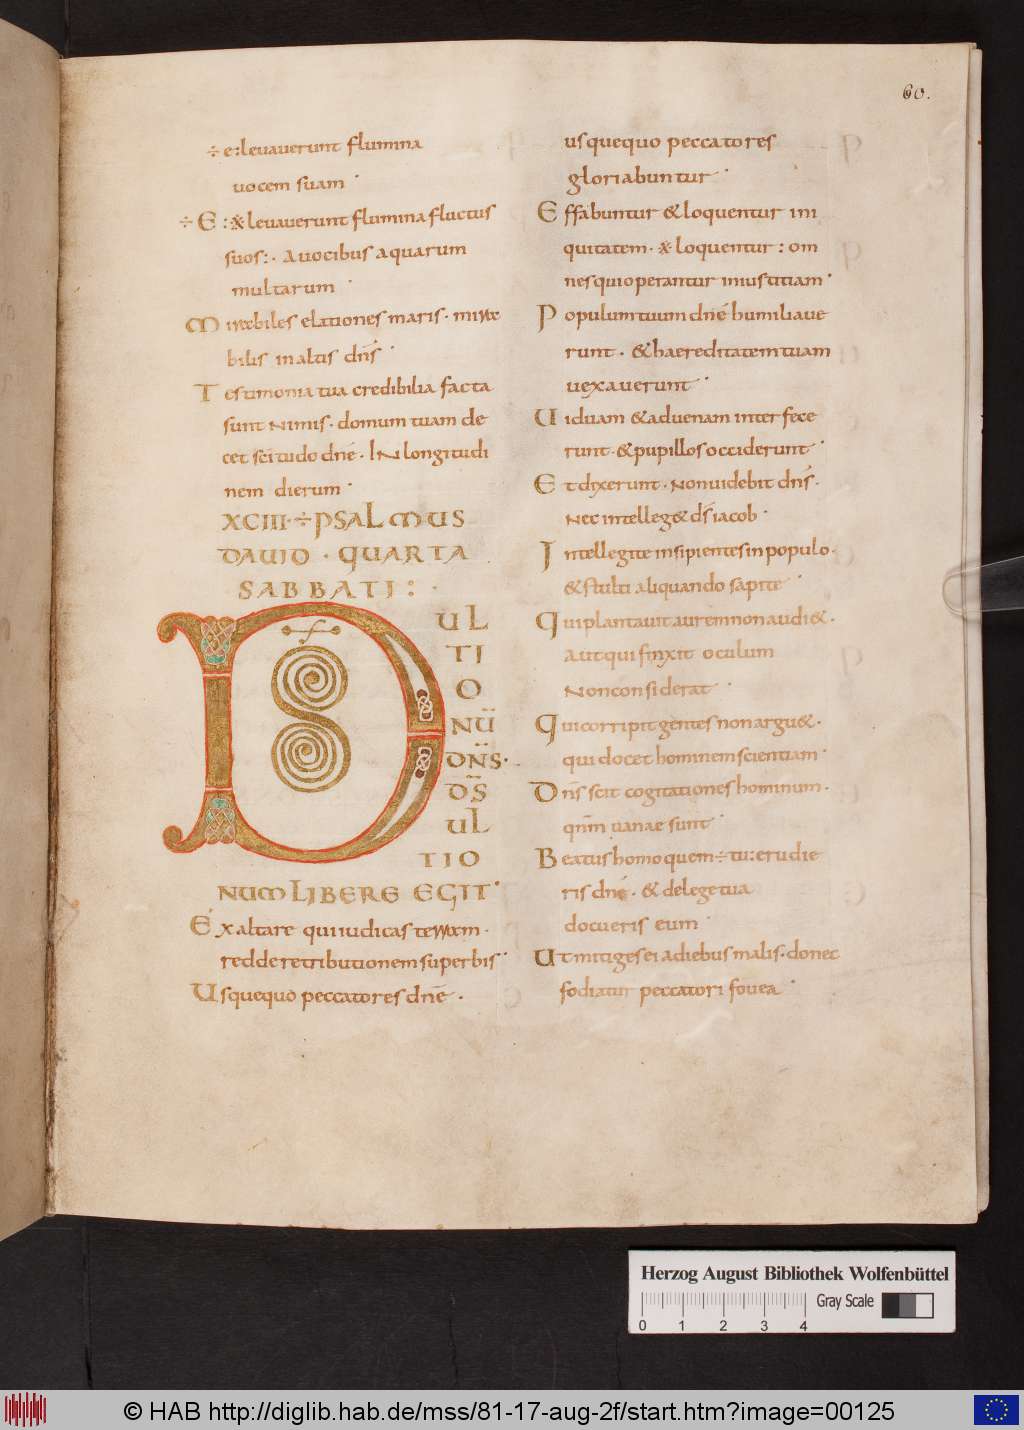 60.
÷ e:levaverunt flumina
vocem suam·
÷ E : ※ levaverunt flumina fluctus
suos:· A vocibus aquarum
multarum·
Mirabiles elationes maris· mira
bilis in altis dn̄s·
Testimonia tua credibilia facta
sunt Nimis· domum tuam de
cet sc̄itudo dn̄e· IN longitudi
nem dierum·
XCIII·÷PSALMUS
DAVID· QUARTA
SABBATI:·
DS
UL
TI
O
NŪ
DN̄S·
D̄S
UL
TIO
NUM LIBERE EGIT·
Exaltare qui iudicas terram·
redde retributionem superbis·
Usquequo peccatores dn̄e·
usquequo peccatores
gloriabuntur·
Effabuntur & loquentur ini
quitatem· ※ loquentur : om
nes qui operantur iniustitiam·
Populum tuum dn̄e humiliave
runt· & haereditatem tuam
vexaverunt·
Viduam & advenam interfece
runt· & pupillos occiderunt·
Et dixerunt· Non videbit dn̄s·
Nec intelleg& d̄s iacob·
Intellegite insipientes in populo·
& stulti aliquando sapite·
Qui plantavit aurem non audi&·
Aut qui finxit oculum
Non considerat·
Qui corripit gentes non argu&·
qui docet hominem scientiam·
Dn̄s scit cogitationes hominum·
qn̄m vanae sunt·
Beatus homo quem÷tu:erudie
ris dn̄e· & de lege tua
docueris eum·
Ut mitiges ei a diebus malis· donec
fodiatur peccatori fovea·
Herzog August Bibliothek Wolfenbüttel
Gray Scale
0 1 2 3 4
© HAB http://diglib.hab.de/mss/81-17-aug-2f/start.htm?image=00125